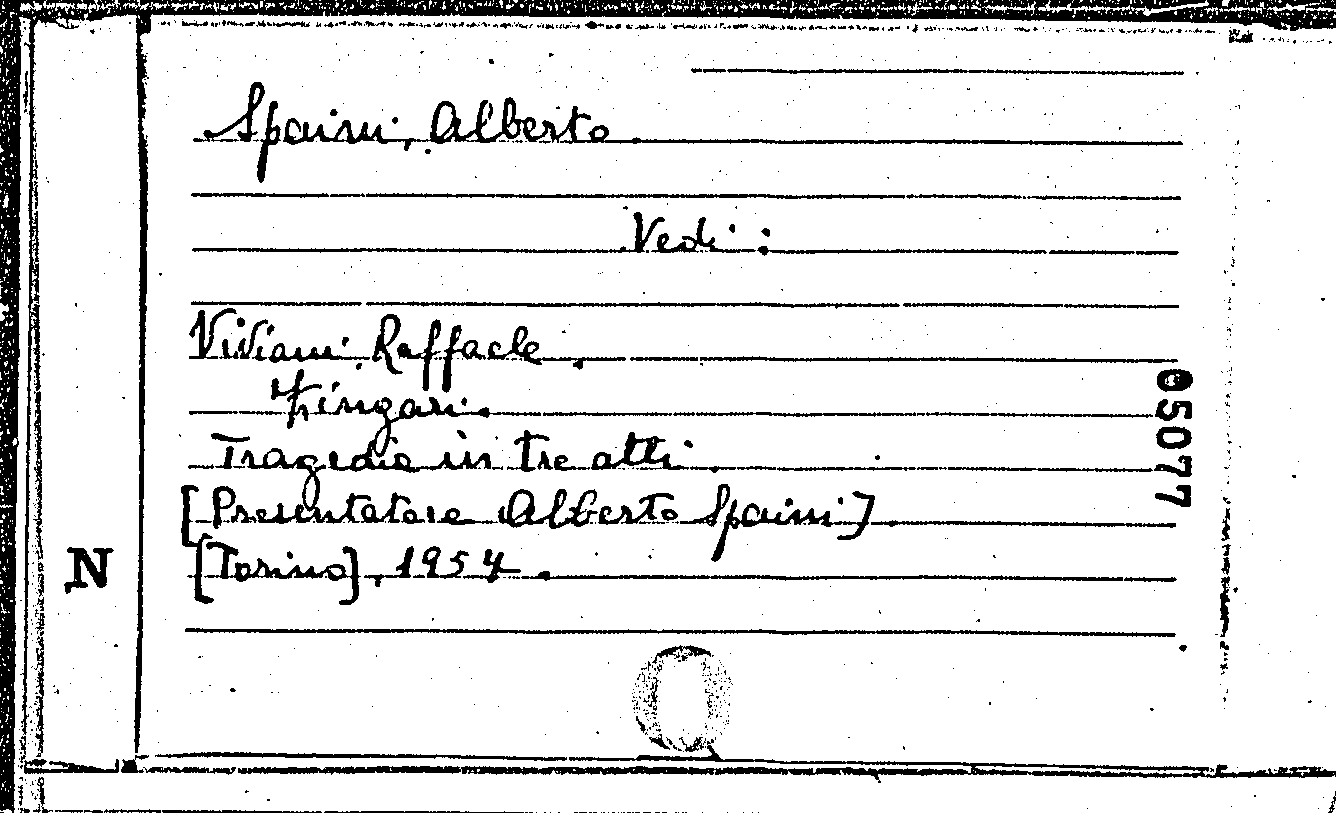 Spaini, Alberto.
Vedi:
Viviani Raffaele.
Zingari.
Tragedia in tre atti.
[Presentatore Alberto Spaini].
[Torino], 1954.
N
05077